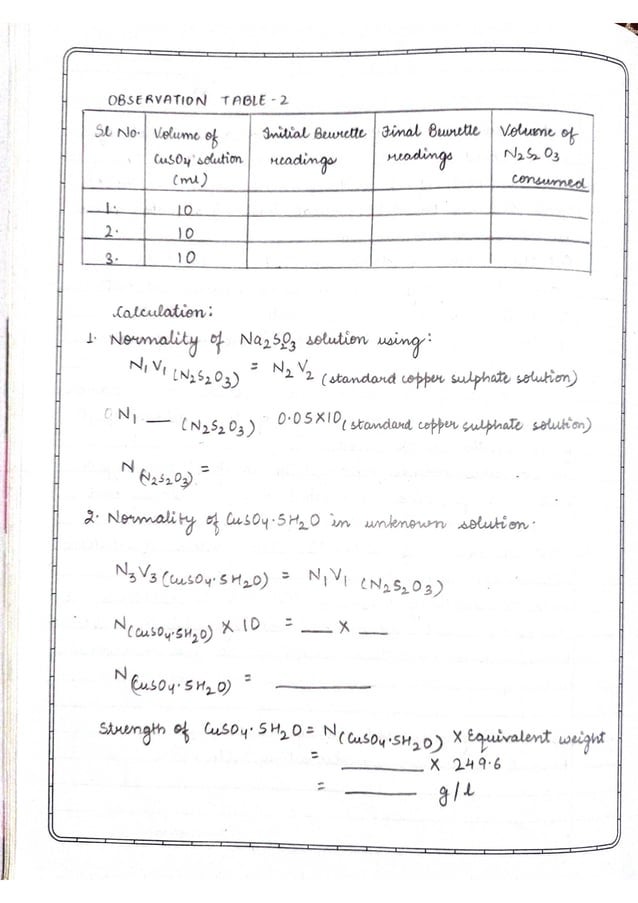 OBSERVATION TABLE - 2
Sl No. Volume of CuSO4 solution (ml) Initial Beurette readings Final Burette readings Volume of N2S2O3 consumed
1. 10
2. 10
3. 10
Calculation:
1. Normality of Na2S2O3 solution using:
N1V1 (N2S2O3) = N2V2 (standard copper sulphate solution)
N1 __ (N2S2O3) 0.05×10 (standard copper sulphate solution)
N(N2S2O3) =
2. Normality of CuSO4·5H2O in unknown solution.
N3V3 (CuSO4·5H2O) = N1V1 (N2S2O3)
N(CuSO4·5H2O) × 10 = __ × __
N(CuSO4·5H2O) = ______
Strength of CuSO4·5H2O = N(CuSO4·5H2O) × Equivalent weight
= ______ × 249.6
= ______ g/l